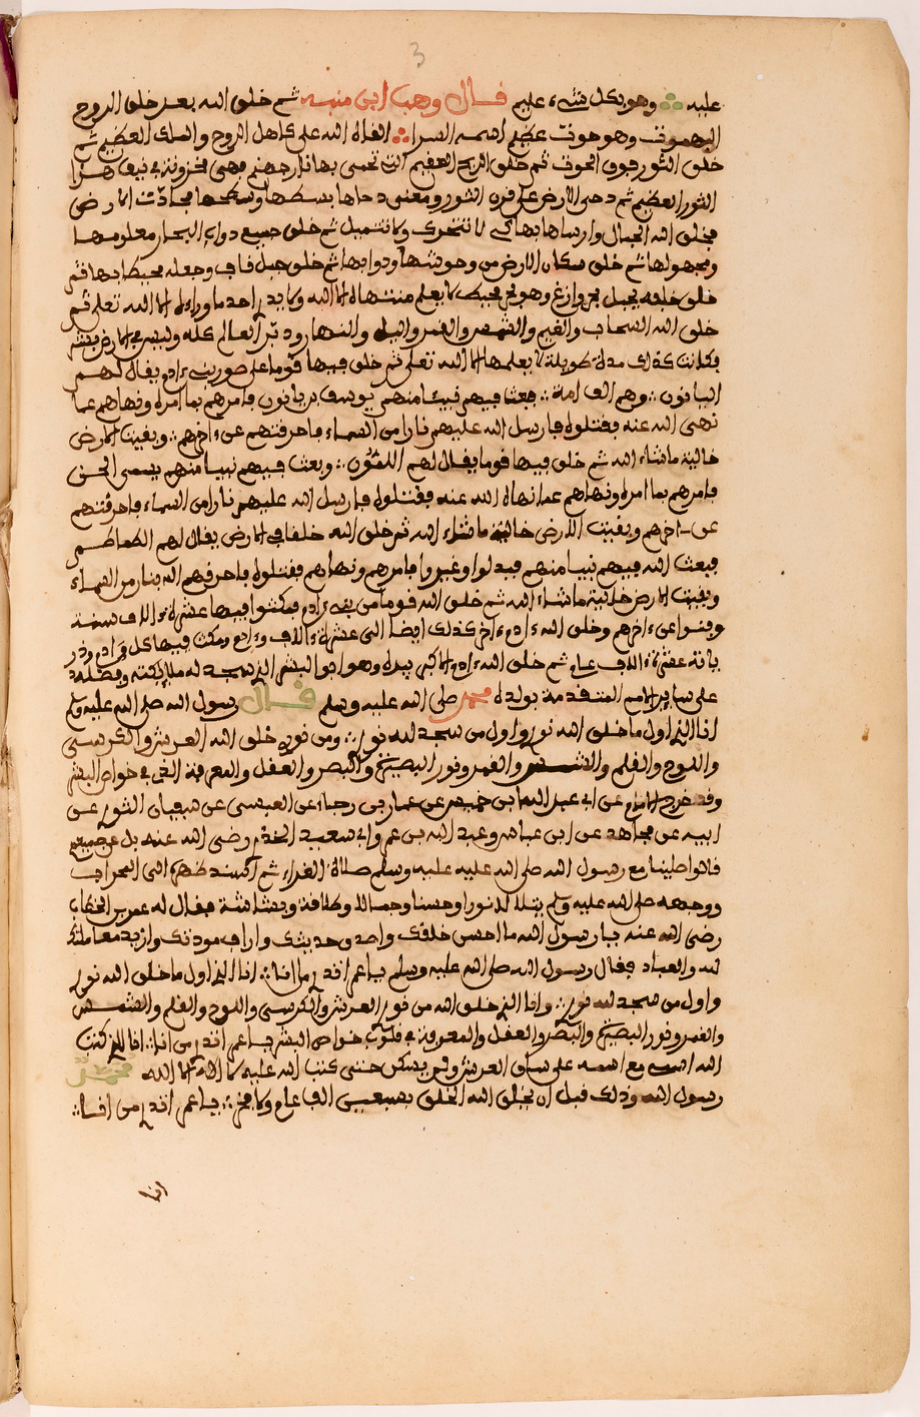 3
عليه وهو بكل شيء عليم قال وهب ابن منبه ثم خلق الله بعد خلق الروح
البهموت وهو حوت عظيم القاه الله على كاهل الروح والملك العظيم ثم
خلق الثور فوق الحوت ثم خلق الريح العقيم التي تحمى بها نار جهنم فهي مخزونة في هذا
الثور العظيم ثم دحى الارض على قرن الثور ومعنى دحاها بسطها وسطحها الارض
فخلق الله الجبال وارساها بها كي لا تتحرك ولا تتميل ثم خلق جميع دواب البحار معلومها
ومجهولها ثم خلق سكان الارض من وحوشها ودوابها ثم خلق جبل قاف وجعله محيطا بها ثم
خلق خلفه بحر وهو محيط لا يعلم منتهاه الا الله ولا يدر احد ما وراءه الا الله تعلى ثم
خلق الله السحاب والغيم والشمس والقمر واليل والنهار ودبر العالم كله وليس في الارض
فكانت كذلك مدة طويلة لا يعلمها الا الله تعلى ثم خلق فيها قوما على صورة بني ءادم يقال لهم
البانون وهم الف امة فبعث فيهم نبيئا منهم يوسف بن يانون فامرهم بما امره ونهاهم عما
نهى الله عنه فقتلوه فارسل الله عليهم نارا من السماء فاحرقتهم عن ءاخرهم وبقيت الارض
خالية ما شاء الله ثم خلق فيها قوما يقال لهم وبعث فيهم نبيا منهم يسمى الحسن
فامرهم بما امره ونهاهم عما نهاه الله عنه فقتلوه فارسل الله عليهم نارا من السماء فاحرقتهم
عن ءاخرهم وبقيت الارض خالية ما شاء الله ثم خلق الله خلقا في الارض يقال لهم الطماطم
فبعث الله فيهم نبيا منهم فبدلوا وغيروا فامرهم ونهاهم فقتلوه فاحرقهم الله بنار من السماء
وبقيت الارض خالية ما شاء الله ثم خلق الله قوما من بني ءادم فمكثوا فيها عشرة ءالاف سنة
وفنوا عن ءاخرهم وخلق الله ءادم ءاخر كذلك ايضا الى عشرة ءالاف ءادم ومكث فيها كل ءادم وذر
ياته عشرة ءالاف عام ثم خلق الله ءادم الاكبر بيده وهو ابو البشر الذي سجد له ملايكته وفضله
على ساير الامم المتقدمة بولده محمد صلى الله عليه وسلم قال رسول الله صلى الله عليه وسلم
انا الذي اول ما خلق الله نور واول من سجد لله نور ومن نور خلق الله العرش والكرسي
واللوح والقلم والشمس والقمر ونور البصيرة والبصر والعقل والمعرفة التي في خواص البشر
وقد خرج الامام عن ابي عبد الله بن عن عمار بن رجاء عن العبسي عن سفيان الثور عن
ابيه عن مجاهد عن ابن عباس وعبد الله بن عمر وابي سعيد الخدر رضي الله عنه بل عن جميعهم
قالوا صلينا مع رسول الله صلى الله عليه وسلم صلاة الغداء ثم اسند ظهره الى المحراب
ووجهه صلى الله عليه وسلم يتلالا نورا وحسنا وجمالا وطلاقة وبشاشة فقال له عمر بن الخطاب
رضي الله عنه يا رسول الله ما احسن خلقك واصدق حديثك
لله والعباد فقال رسول الله صلى الله عليه وسلم يا عمر اتدر من انا انا الذي اول ما خلق الله نور
واول من سجد لله نور وانا الذي خلق الله من نور العرش والكرسي واللوح والقلم والشمس
والقمر ونور البصيرة والبصر والعقل والمعرفة في قلوب خواص البشر يا عمر اتدر من انا انا الذي كتب
الله اسمي مع اسمه على ساق العرش ولم يسكن حتى كتب الله عليه لا اله الا الله محمد
رسول الله وذلك قبل ان يخلق الله الخلق بسبعين الف عام ولا فخر يا عمر اتدر من انا
انا